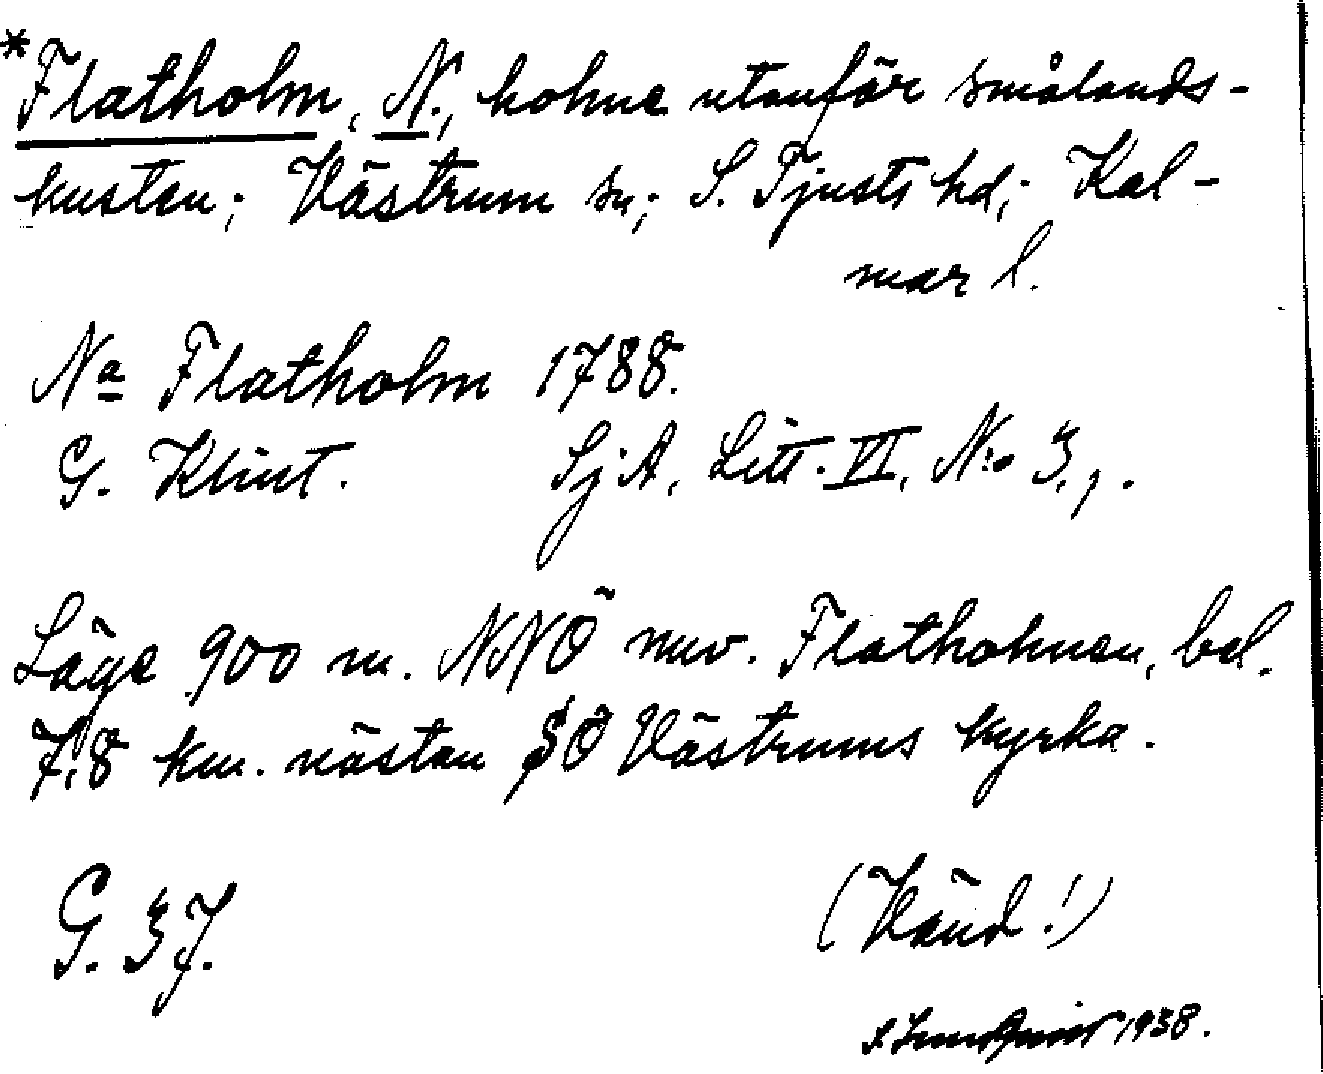 *Flatholm, N., holme utanför smålands-
kusten; Västrum sn; S. Tjusts hd; Kal-
mar l.
Na Flatholm 1788.
G. Klint. SjA, Litt. VI, N:o 3,1.
Läge 900 m. NNÖ nuv. Flatholmen, bel.
7,8 km. nästan SÖ Västrums kyrka.
G. 37.
(Vänd!)
S. Lundquist 1938.